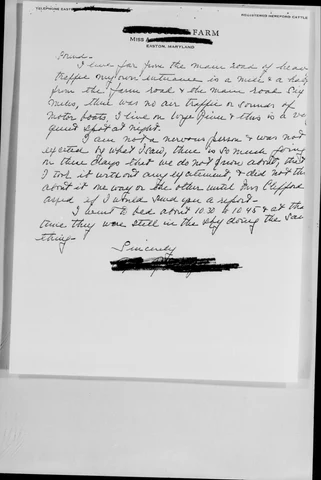 TELEPHONE EAST
REGISTERED HEREFORD CATTLE
FARM
MISS
EASTON, MARYLAND
sound.
I live far from the main road of heavy
traffic my own entrance is a mile & a half
from the farm road & the main road six
miles, there was no air traffic or sounds of
motor boats, I live on Wye river & this is a ve
quiet spot at night.
I am not a nervous person & was not
excited by what I saw, there is so much going
on these days that we do not know about, that
I took it without any excitement, & did not th
about it one way or the other until Mrs Clifford
asked if I would send you a report.
I went to bed about 10.30 to 10.45 & at tha
time they were still in the sky doing the sam
thing.
Sincerely